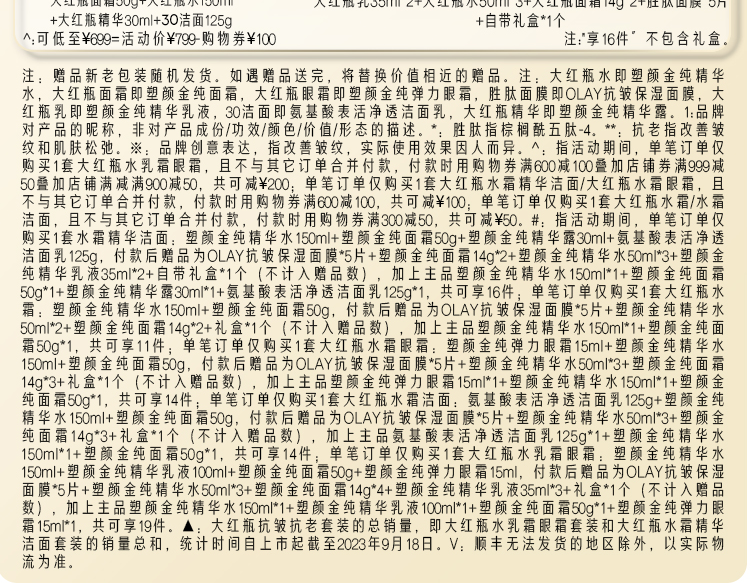 大红瓶面霜50g+大红瓶水150ml
大红瓶乳35ml*2+大红瓶水50ml*3+大红瓶面霜14g*2+胜肽面膜*5片
+大红瓶精华30ml+30洁面125g
+自带礼盒*1个
^:可低至¥699=活动价¥799-购物券¥100
注:"享16件" 不包含礼盒。
注：赠品新老包装随机发货。如遇赠品送完，将替换价值相近的赠品。注：大红瓶水即塑颜金纯精华
水，大红瓶面霜即塑颜金纯面霜，大红瓶眼霜即塑颜金纯弹力眼霜，胜肽面膜即OLAY抗皱保湿面膜，大
红瓶乳即塑颜金纯精华乳液，30洁面即氨基酸表活净透洁面乳，大红瓶精华即塑颜金纯精华露。1:品牌
对产品的昵称，非对产品成份/功效/颜色/价值/形态的描述。*：胜肽指棕榈酰五肽-4。**：抗老指改善皱
纹和肌肤松弛。※：品牌创意表达，指改善皱纹，实际使用效果因人而异。^：指活动期间，单笔订单仅
购买1套大红瓶水乳霜眼霜，且不与其它订单合并付款，付款时用购物券满600减100叠加店铺券满999减
50叠加店铺满减满900减50，共可减¥200；单笔订单仅购买1套大红瓶水霜精华洁面/大红瓶水霜眼霜，且
不与其它订单合并付款，付款时用购物券满600减100，共可减¥100；单笔订单仅购买1套大红瓶水霜/水霜
洁面，且不与其它订单合并付款，付款时用购物券满300减50，共可减¥50。#：指活动期间，单笔订单仅
购买1套水霜精华洁面：塑颜金纯精华水150ml+塑颜金纯面霜50g+塑颜金纯精华露30ml+氨基酸表活净透
洁面乳125g，付款后赠品为OLAY抗皱保湿面膜*5片+塑颜金纯面霜14g*2+塑颜金纯精华水50ml*3+塑颜金
纯精华乳液35ml*2+自带礼盒*1个（不计入赠品数），加上主品塑颜金纯精华水150ml*1+塑颜金纯面霜
50g*1+塑颜金纯精华露30ml*1+氨基酸表活净透洁面乳125g*1，共可享16件；单笔订单仅购买1套大红瓶水
霜：塑颜金纯精华水150ml+塑颜金纯面霜50g，付款后赠品为OLAY抗皱保湿面膜*5片+塑颜金纯精华水
50ml*2+塑颜金纯面霜14g*2+礼盒*1个（不计入赠品数），加上主品塑颜金纯精华水150ml*1+塑颜金纯面
霜50g*1，共可享11件；单笔订单仅购买1套大红瓶水霜眼霜：塑颜金纯弹力眼霜15ml+塑颜金纯精华水
150ml+塑颜金纯面霜50g，付款后赠品为OLAY抗皱保湿面膜*5片+塑颜金纯精华水50ml*3+塑颜金纯面霜
14g*3+礼盒*1个（不计入赠品数），加上主品塑颜金纯弹力眼霜15ml*1+塑颜金纯精华水150ml*1+塑颜金
纯面霜50g*1，共可享14件；单笔订单仅购买1套大红瓶水霜洁面：氨基酸表活净透洁面乳125g+塑颜金纯
精华水150ml+塑颜金纯面霜50g，付款后赠品为OLAY抗皱保湿面膜*5片+塑颜金纯精华水50ml*3+塑颜金
纯面霜14g*3+礼盒*1个（不计入赠品数），加上主品氨基酸表活净透洁面乳125g*1+塑颜金纯精华水
150ml*1+塑颜金纯面霜50g*1，共可享14件；单笔订单仅购买1套大红瓶水乳霜眼霜：塑颜金纯精华水
150ml+塑颜金纯精华乳液100ml+塑颜金纯面霜50g+塑颜金纯弹力眼霜15ml，付款后赠品为OLAY抗皱保湿
面膜*5片+塑颜金纯精华水50ml*3+塑颜金纯面霜14g*4+塑颜金纯精华乳液35ml*3+礼盒*1个（不计入赠品
数），加上主品塑颜金纯精华水150ml*1+塑颜金纯精华乳液100ml*1+塑颜金纯面霜50g*1+塑颜金纯弹力眼
霜15ml*1，共可享19件。▲：大红瓶抗皱抗老套装的总销量，即大红瓶水乳霜眼霜套装和大红瓶水霜精华
洁面套装的销量总和，统计时间自上市起截至2023年9月18日。V：顺丰无法发货的地区除外，以实际物
流为准。